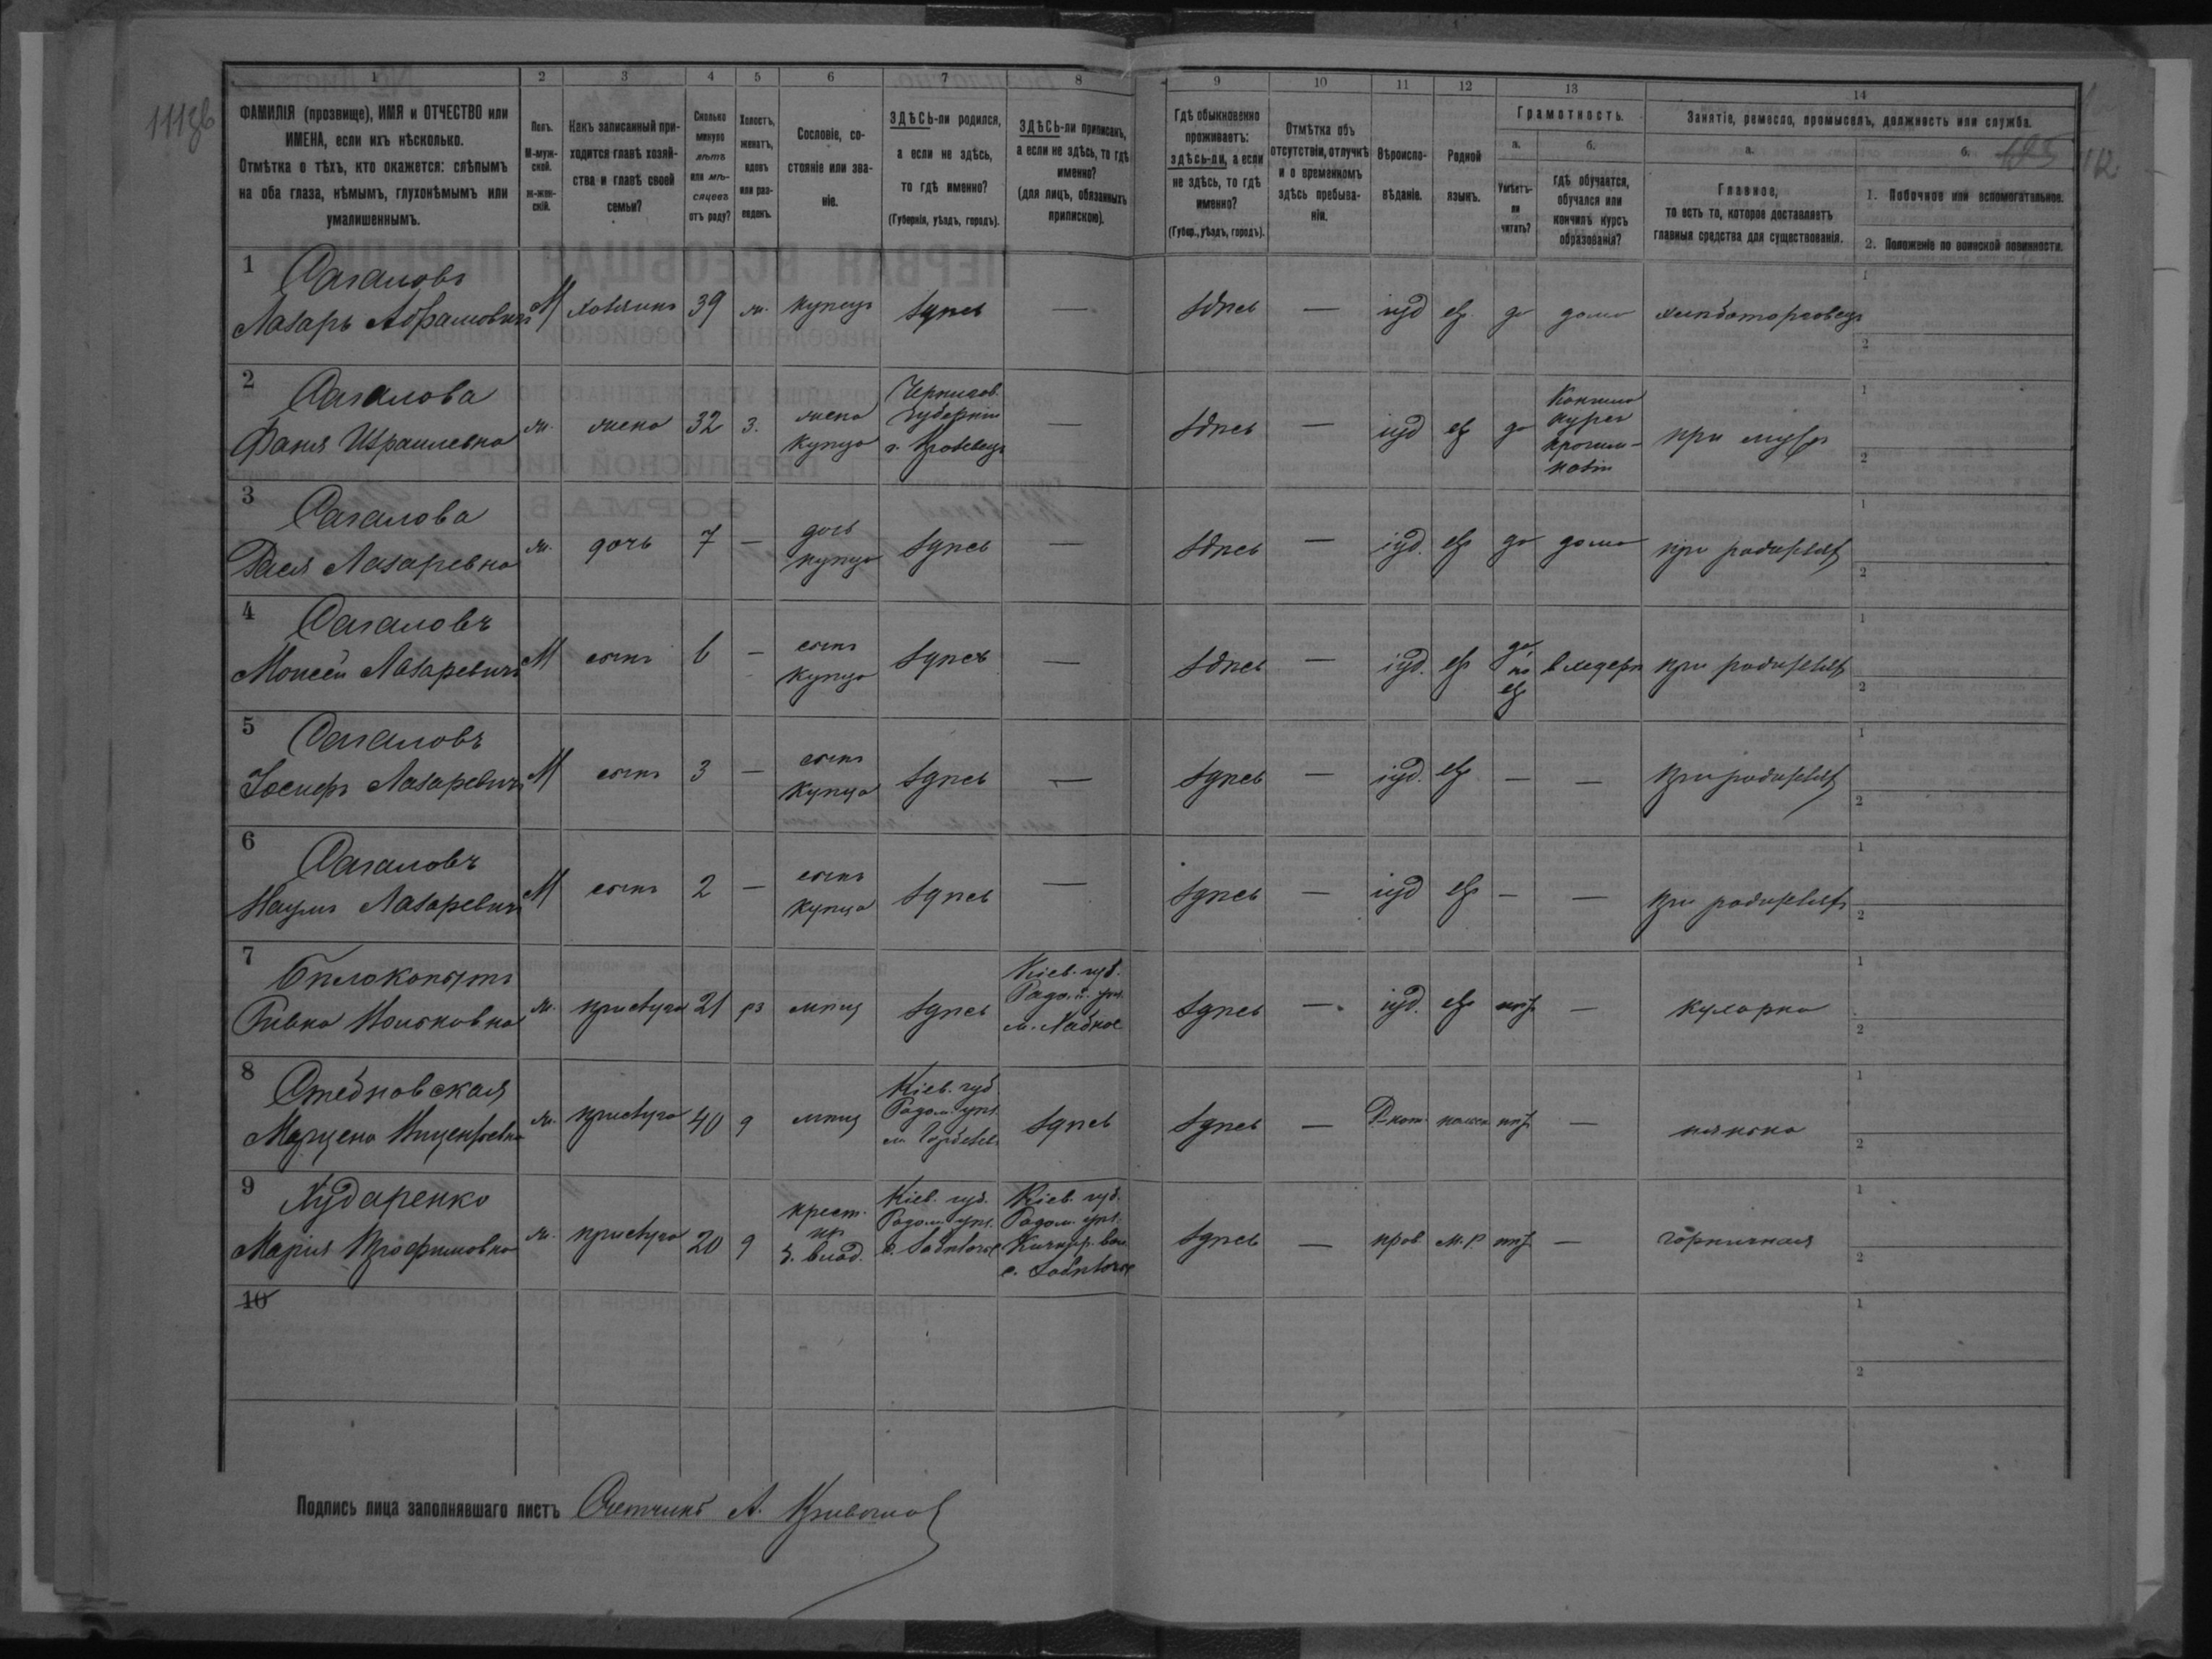 1 2 3 4 5 6 7 8 9 10 11 12 13 14
ФАМИЛІЯ (прозвище), ИМЯ и ОТЧЕСТВО или
ИМЕНА, если ихъ нѣсколько.
Отмѣтка о тѣхъ, кто окажется: слѣпымъ
на оба глаза, нѣмымъ, глухонѣмымъ или
умалишеннымъ.
Полъ.
М-муж-
ской.
ж-жен-
скій.
Какъ записанный при-
ходится главѣ хозяй-
ства и главѣ своей
семьи?
Сколько
минуло
лѣтъ
или мѣ-
сяцевъ
отъ роду?
Холостъ,
женатъ,
вдовъ
или раз-
веденъ.
Сословіе, со-
стояніе или зва-
ніе.
ЗДѢСЬ-ли родился,
а если не здѣсь,
то гдѣ именно?
(Губернія, уѣздъ, городъ).
ЗДѢСЬ-ли приписанъ,
а если не здѣсь, то гдѣ
именно?
(для лицъ, обязанныхъ
припискою).
Гдѣ обыкновенно
проживаетъ:
здѣсь-ли, а если
не здѣсь, то гдѣ
именно?
(Губер., уѣздъ, городъ).
Отмѣтка объ
отсутствіи, отлучкѣ
и о временномъ
здѣсь пребыва-
ніи.
Вѣроиспо-
вѣданіе.
Родной
языкъ.
Грамотность.
а.
Умѣетъ-
ли
читать?
б.
гдѣ обучается,
обучался или
кончилъ курсъ
образованія?
Занятіе, ремесло, промыселъ, должность или служба.
а.
Главное,
то есть то, которое доставляетъ
главныя средства для существованія.
б.
1. Побочное или вспомогательное.
2. Положеніе по воинской повинности.
112
1 Сагаловъ
Лазарь Абрамовичъ М хозяинъ 39 ж. купецъ здѣсь — здѣсь — іуд евр да дома хлѣботорговецъ
1
2
2 Сагалова
Фаня Израилевна ж. жена 32 з. жена
купца
Чернигов.
Губерніи
г. Кролевецъ
— здѣсь — іуд евр да
Кончила
курсъ
прогим-
назіи
при мужѣ
1
2
3 Сагалова
Лазаревна ж. дочь 7 — дочь
купца здѣсь — здѣсь — іуд. евр да дома при родителяхъ
1
2
4 Сагаловъ
Моисей Лазаревичъ М сынъ 6 — сынъ
купца здѣсь — здѣсь — іуд. евр да
по
евр
в хедерѣ при родителяхъ
1
2
5 Сагаловъ
Іосифъ Лазаревичъ М сынъ 3 — сынъ
купца здѣсь — здѣсь — іуд. евр — — при родителяхъ
1
2
6 Сагаловъ
Наумъ Лазаревичъ М сынъ 2 — сынъ
купца здѣсь — здѣсь — іуд евр — — при родителяхъ
1
2
7 Бѣлокопытъ
Ривка ж. прислуга 21 рз мѣщ здѣсь
Кіев. губ.
м.
здѣсь — іуд. евр нѣт — кухарка
1
2
8
ж. прислуга 40 д мѣщ
Кіев. губ
Радом. уѣз.
м.
здѣсь здѣсь — Р.кат польск нѣт — нянька
1
2
9 Хударенко
Марія Трофимовна ж. прислуга 20 д
крест.
из
б. влад.
Кіев. губ.
Радом. уѣз.
с.
Кіев. губ.
Радом. уѣз.
с.
здѣсь — прав м.р. нѣт — горничная
1
2
10
1
2
Подпись лица заполнявшаго листъ Счетчикъ А.